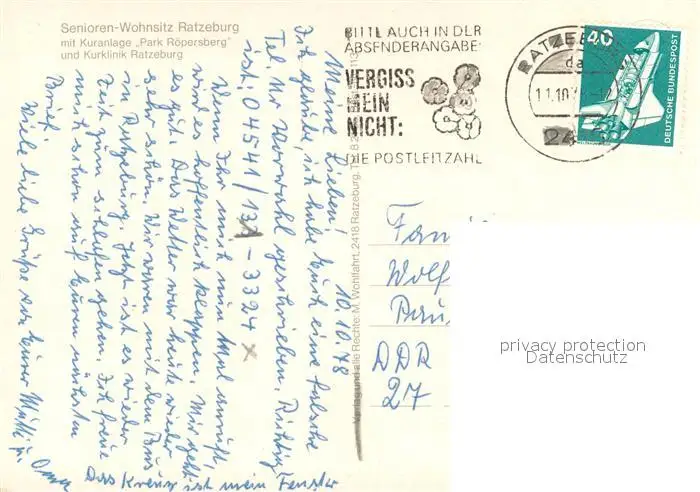 Senioren-Wohnsitz Ratzeburg
mit Kuranlage „Park Röpersberg"
und Kurklinik Ratzeburg
BITTE AUCH IN DER
ABSENDERANGABE:
VERGISS
MEIN
NICHT:
DIE POSTLEITZAHL
RATZEB
11.10.78
24
40
DEUTSCHE BUNDESPOST
10.10.78
Meine Lieben!
Ich glaube, ich habe Euch eine falsche
Tel. Nr. Vorwahl geschrieben. Richtig
ist: 04541/131-3324 x
Wenn Ihr mich mal anruft,
wird es hoffentlich klappen. Mir geht
es gut. Das Wetter war heute wieder
sehr schön. Wir waren mit dem Bus
in Ratzeburg. Jetzt ist es wieder
Zeit zum schlafen gehen. Ich freue
mich schon auf Euren nächsten
Brief.
Viele liebe Grüße von Eurer Mutti u.
Oma
x Das Kreuz ist mein Fenster
Verlag und alle Rechte: M. Wohlfahrt, 2418 Ratzeburg, T
Fam
Wolf
Bau
DDR
27
privacy protection
Datenschutz